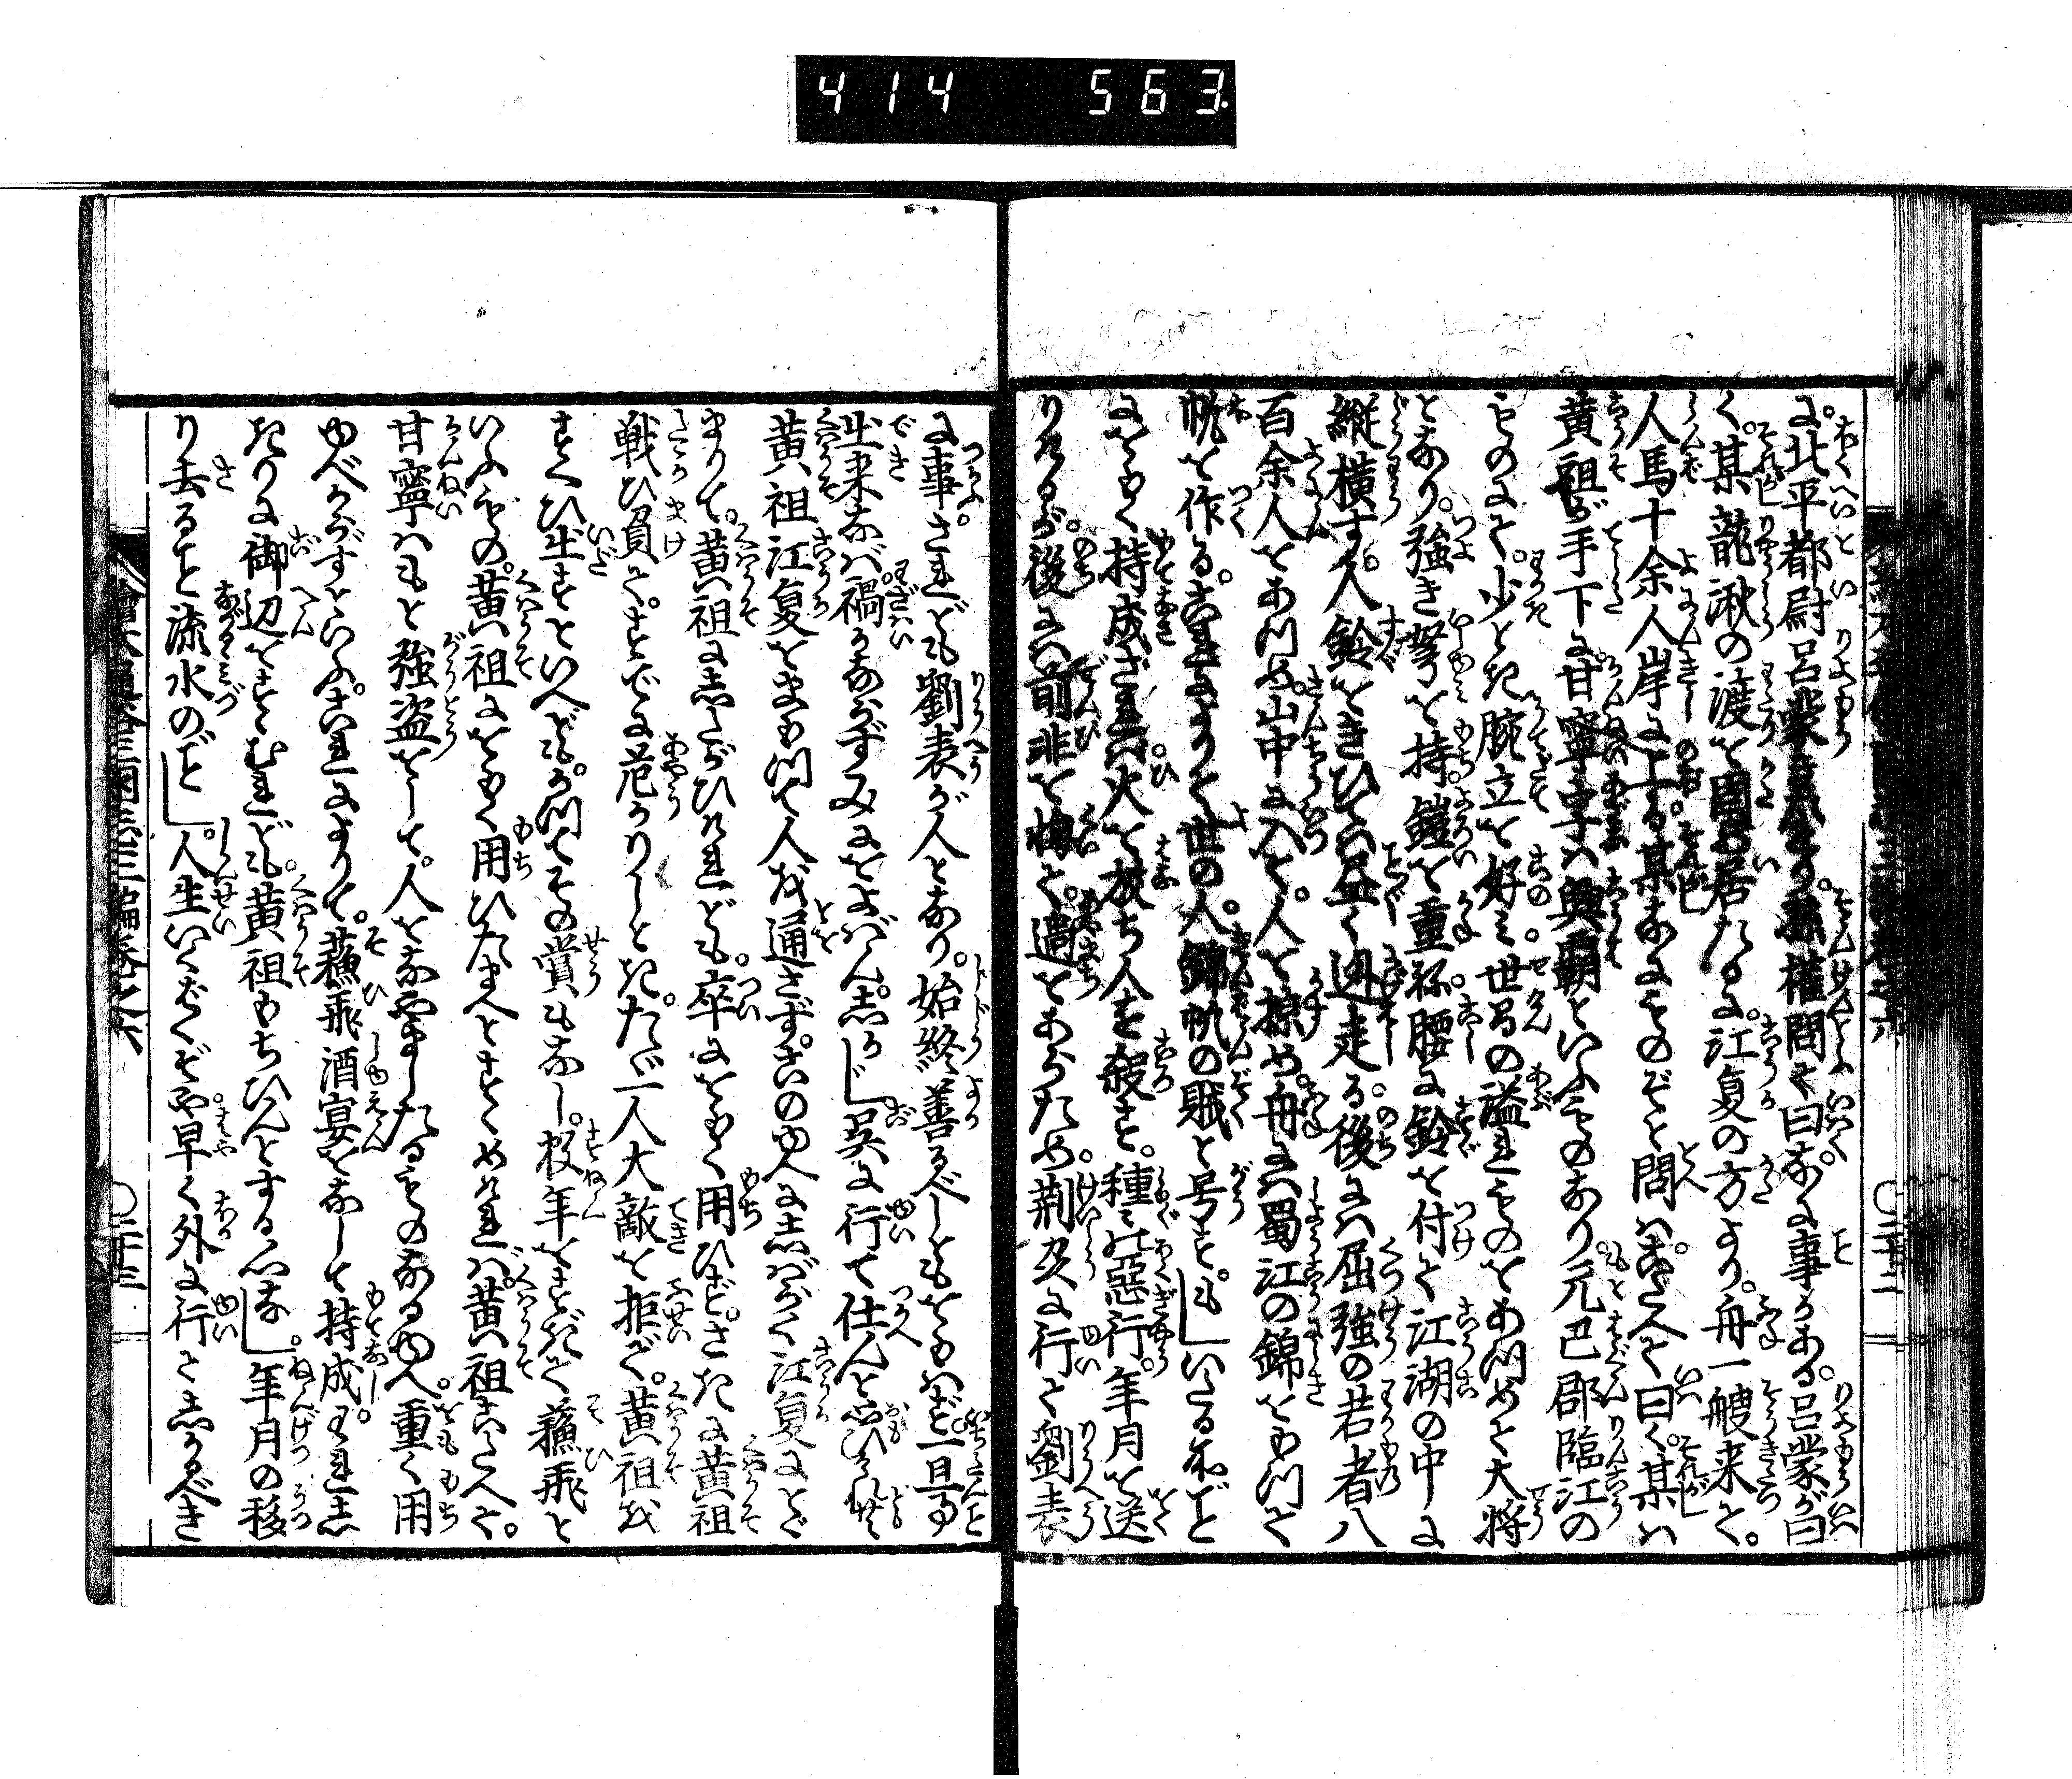 414 563
に。北平都尉呂蒙来る。孫權問て曰なに事かある。呂蒙が曰
く。某龍湫の渡を固め居たるに。江夏の方より。舟一艘来て。
人馬十余人岸に上る。某なにものぞと問へば。こたへて曰く。某は
黄祖が手下に。甘寧字は興覇といふものなり。元巴郡臨江の
ものにて。少とき腕立を好み。世間の溢れものをあつめて大将
となり。強き弩を持。鎧を重ね。腰に鈴を付て江湖の中に
縦横す。人鈴をきひては且く迯走る。後には屈強の若者八
百余人をあつめ。山中に入て。人を掠め。舟には蜀江の錦をもつて
帆を作る。これによりて世の人。錦帆の賊と号す。もしいたる所ど
にをもく持成ざれは。火を放ち人を殺す。種〻の惡行。年月を送
りけるが。後には前非を悔て。過をあらため。荊州に行て劉表
に事。されども劉表が人となり。始終善るべしともをもはず。一旦事
出来なば禍かならずみにをよばん。しかじ。呉に行て仕んと思ひ
黄祖江夏をまもつて人を通さず。このゆへにしばらく江夏にとど
まりて。黄祖にしたがひけれども。卒にをもく用ひず。さきに黄祖
戦ひ負て。すでに危かりしとき。たゞ一人大敵を拒ぎ。黄祖を
すくひ出すといへども。かつてその賞もなし。数年をすぎて蘇飛と
いふもの。黄祖にをもく用ひたまへとすゝめければ。黄祖こたへて。
甘寧はもと強盗をして。人をなやましたるものなるゆへ。重く用
ゆべからずといふ。これによりて。蘇飛酒宴をなして持成。われし
きりに御辺をすゝむれども。黄祖もちひんとする心なし。年月の移
り去ること流水のごとし。人生いくばくぞや。早く外に行てしかるべき
繪本通俗三國志三編卷之六
○二十二
○二十三